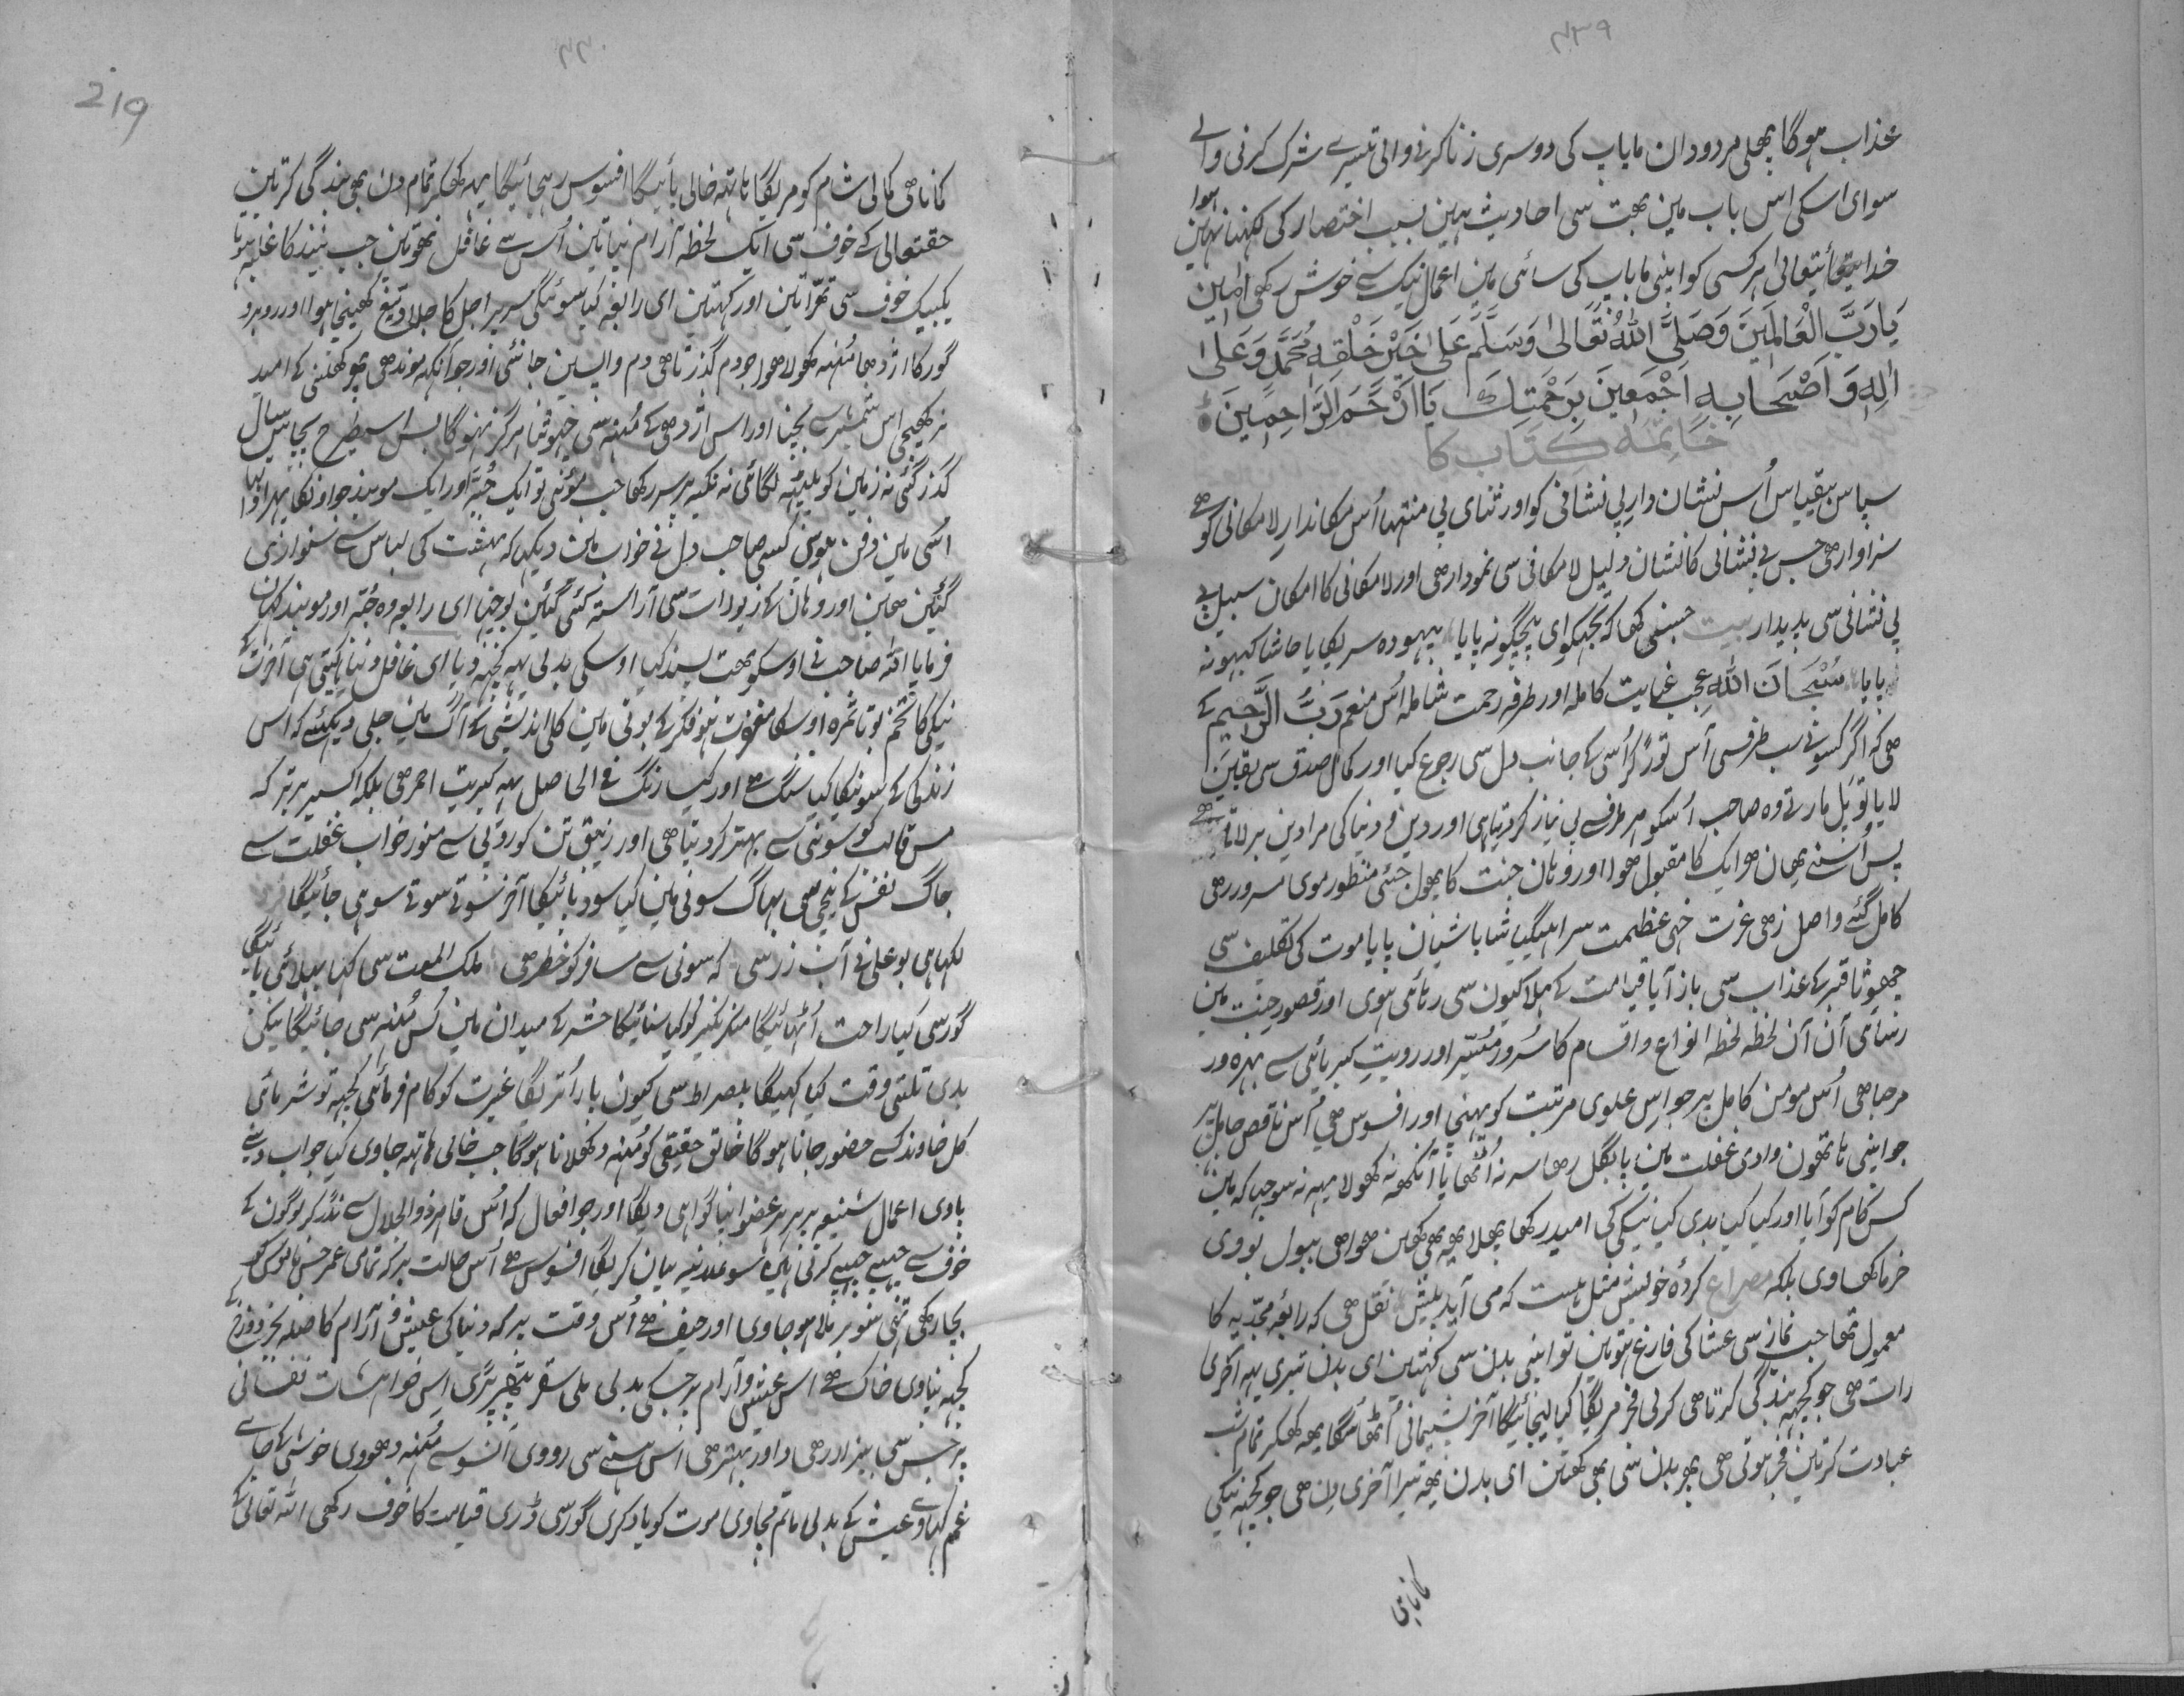 ۴۳۹
عذاب ہوگا پھلی مردودان ماباپ کی دوسری زنا کرنے والی تیسرے شرک کرنی والے
سوای اسکی اس باب مین بھت سی احادیث ہین بسبب اختصار کی لکھنا نہین ہوا
خدایتعالیٰ ہر کسی کو اپنی ماباپ کی سائی مین اعمال نیک سے خوش رکھی امین
یَارَبَّ الْعَالَمِینَ وَصَلَّی اللّٰهُ تَعَالیٰ وَسَلَّمَ عَلیٰ خَیْرِ خَلْقِهٖ مُحَمَّدٍ وَعَلیٰ
اٰلِهٖ وَاَصْحَابِهٖ اَجْمَعِینَ بِرَحْمَتِكَ یَا اَرْحَمَ الرَّاحِمِینَ
خاتمہ کتاب کا
سپاس بیقیاس اُس نشان دارِ بی نشانی کو اور ثنای بی منتہا اُس مکاندارِ لامکانی کو
سزاوار ھی جس بے نشانی کا نشان دلیل لامکانی سی نمودار ھی اور لامکانی کا امکان سبیل
بی نشانی سی پدیدار بیت جسنی کھا کہ تجھکو ای بیچگونہ پایا بیہودہ سر پھایا حاشا کبہو نہ
پایا سُبْحَانَ اللّٰهِ عجب عنایت کاملہ اور طرفہ رحمت شاملہ اُس منعم رَبِّ الرَّحِیم کے
ھی کہ اگر کسو نے سب طرف سی آس توڑ کر اُسی کے جانب دل سی رجوع کیا اور کمال صدق سی یقین
لایا تو پل مارتے وہ صاحب اُسکو ہر طرف بی نیاز کر دیتا ہی اور دین و دنیا کی مرادین بر لاتا ھے
پس اُسنے یھان ھر ایک کا مقبول ھوا اور وہان جنت کا پھول
کامل گئے واصل زھی عزت خھی عظمت سراہیگیا شاباشیان پایا موت کی تکلیف سی
چھوٹا قبر کے عذاب سی باز آیا قیامت کے ہلاکیون سی رہائی ہوی اور قصور جنت مین
رہنا ھی آن آن لحظہ لحظہ انواع و اقسام کا سُرور مُیسّر اور رویتِ کبریائی سے بہرہ ور
مرحبا ھی اُس مومن کامل پر جو اِس علوی مرتبت کو پہنچی اور افسوس ھی اُس ناقص جاہل پر
جو اپنی ہاتھون وادی غفلت مین پابگل رھا سر نہ اُٹھایا آنکھ نہ کھولا یہہ نہ سوچا کہ مین
کس کام کو آیا اور کیا کیا بدی کیا نیکی کی امید رکھا بھلا یھہ بھی کھین ھوا ھی ببول بووی
خرما کھاوی بلکہ مصراع کردۂ خویش مثل ہست کہ می آید پیش نقل ھی کہ رابعہ کا
معمول تھا جب نماز سی عشا کی فارغ ہوتین تو اپنی بدن سی کھتین ای بدن تیری یہہ آخری
رات ھی جو کچھہ بندگی کرتا ھی کر لی فجر مریگا کیا لیجائیگا آخر پشیمانی اُٹھائیگا یھہ کھکر تمام شب
عبادت کرتین فجر ہوتی ھی پھر بدن سی بھی کھتین ای بدن یھہ تیرا آخری دن ھی جو کچھہ نیکی
کمانا ھی
۴۴۰
219
کمانا ھی کمالی شام کو مریگا ہاتہہ خالی جائیگا افسوس رہجائیگا یہہ کھکر تمام دن بھی بندگی کرتین
حقتعالی کے خوف سی ایک لحظہ آرام نپاتین اُس سے غافل نھوتین جب نیند کا غلبہ ہوتا
یکبیک خوف سی تھراتین اور کہتین ای رابعہ کیا سوئیگی سر پر اجل کا جلاد تیغ کھینچا ہوا اور روبرو
گور کا اژدھا مُنہہ کھولا ھوا جو دم گذرتا ھی دم واپسین جانئی اور جو آنکہہ موندھی پھر کھلنی کے امید
نرکھیی اس شمشیر سے بچنا اور اس اژدھی کے مُنہہ سی چھوٹنا ہرگز نہوگا بس اسیطرح پچاس سال
گذر گئی نہ زمین کو پیٹہہ لگائی نہ تکیہ پر سر رکھا جب موئی تو ایک جُبّہ اور ایک موبند جو اونکا پہراوا تھا
اسی مین دفن ہوین کسی صاحب دل نی خواب مین دیکھا کہ بہشت کی لباس سے سنواری
گئین ھین اور وہان کے زیورات سی آراستہ کئی گئین پوچھا ای رابعہ وہ جُبّہ اور موبند کہان
فرمایا اللہ صاحب نی اوسکو بھت پسند کیا اوسکی بدلی یہہ کچھہ دیا ای غافل دنیا کھیتی ہی آخرت کے
نیکی کا تخم بو تا ثمرہ اوسکا مغفرت ہو فکر کے بوتی مین کلی اندیشی کے آگ مین جلی دیکھئے کہ اس
زندگی کے سونیکا کیا سنگ ھے اور کیا رنگ فی الحاصل یہہ کبریت احمر ھی بلکہ اکسیر برتر کہ
مس قالب کو سونی سے بہتر کردیتا ھی اور زیبق تن کو روپی سے منور خواب غفلت سے
جاگ نفس کے نیچی سی بھاگ سونی مین کیا سود پائیگا آخر سوتے سوتے سو ہی جائیگا
لکھا ہی بوعلی نی آب زر سی کہ سونی سے مسافر کو خطر ھی ملک الموت سی کہا بھلائی پائیگا
گور سی کیا راحت اُٹھائیگا منکر نکیر کو کیا سنائیگا حشر کے میدان مین کس مُنہہ سی جائیگا نیکی
بدی تلتی وقت کیا کہیگا پلصراط سی کیون پار اُتریگا غیرت کو کام فرمائی کچھہ تو شرمائی
کل خاوند کے حضور جانا ہوگا خالق حقیقی کو مُنہہ دکھلانا ہوگا جب خالی ہاتہہ جاوی کیا جواب دینے
پاوی اعمال شنیعہ پر ہر ہر عضو اپنا گواہی دیگا اور جو افعال کہ اُس قاہر ذوالجلال سے نڈر کر لوگون کے
خوف سے چھپے چھپے کرتی ہین سو علانیہ بیان کریگا افسوس ھے اُس حالت پر کہ تمامی عمر جس
اور حیف ھے اُس وقت پر کہ دنیا کی عیش و آرام کا صلہ بجز دوزخ کے
کچھہ نپاوی خاک ھے اس عیش و آرام پر جسکی بدلی ملی سقر پتھر پڑی اس خواہشات نفسانی
پر جس سی بیزار ھی داور بہتر ھی اس ہسنے سی رووی آنسو سے مُنہہ دھووی خوشی کے جاے
غم کھاوے عیش کے بدلی ماتم مچاوی موت کو یاد کری گور سی ڈری قیامت کا خوف رکھی اللہ تعالیٰ کے